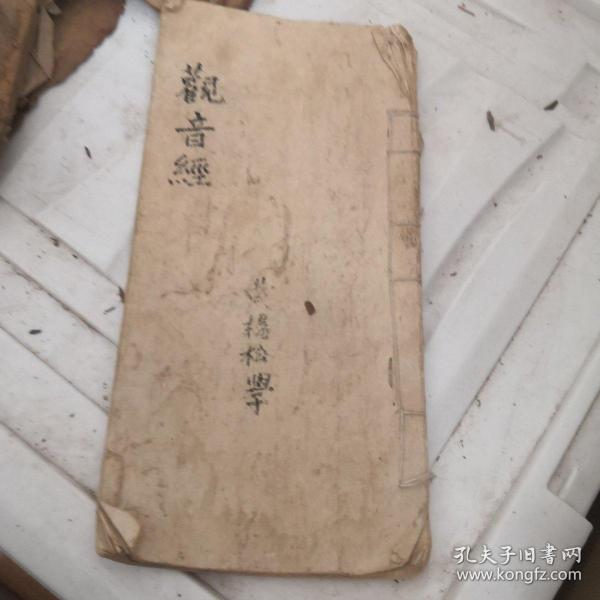 觀音經
黄楊松學
孔夫子旧書网
www.kongfz.com